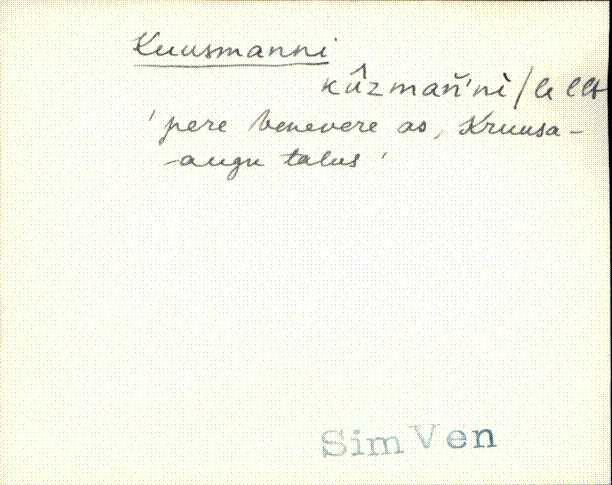 Kuusmanni
kû̬zmaňň'nì / le llt
'pere Venevere as, Kruusa-
-augu talus'
Sim Ven